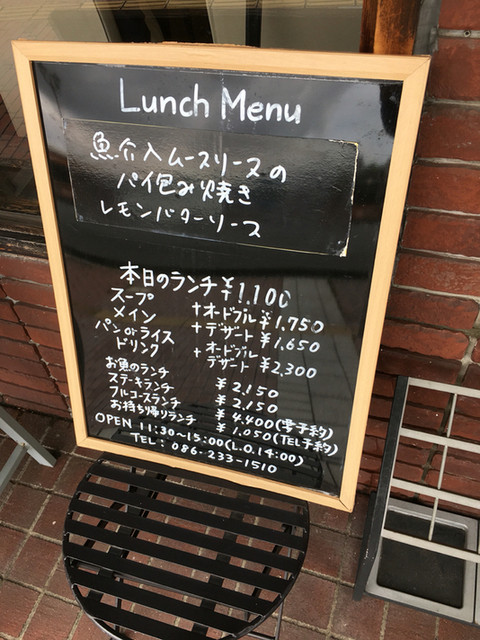 Lunch Menu
魚介入ムースリーヌの
パイ包み焼き
レモンバターソース
本日のランチ ¥1,100
スープ +オードブル ¥1,750
メイン +デザート ¥1,650
パン or ライス +オードブル
ドリンク デザート ¥2,300
お魚のランチ ¥2,150
ステーキランチ ¥2,150
フルコースランチ ¥4,400(要予約)
お持ち帰りランチ ¥1,050(TEL予約)
OPEN 11:30~15:00(L.O.14:00)
TEL: 086-233-1510